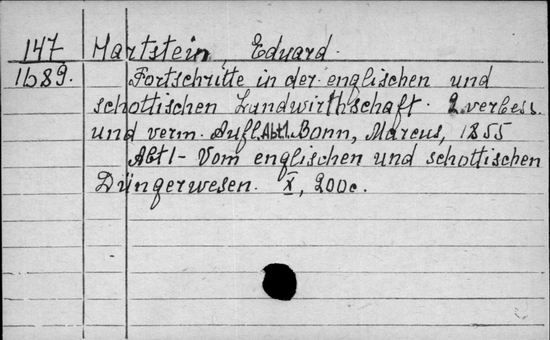 147 Hartstein, Eduard.
1b89. Fortschritte in der englischen und
schottischen Landwirthschaft. 2. verbess.
und verm. Aufl. Abt1. Bonn, Marcus, 1855
Abt 1 - Vom englischen und schottischen
Düngerwesen. X, 200c.